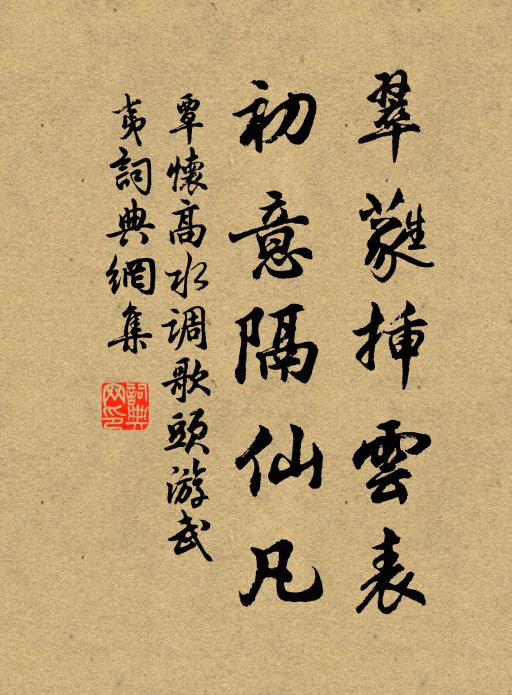 翠蕤插雲表
初意隔仙凡
覃懷高水调歌頭游武
夷詞典網集
詞典
网印